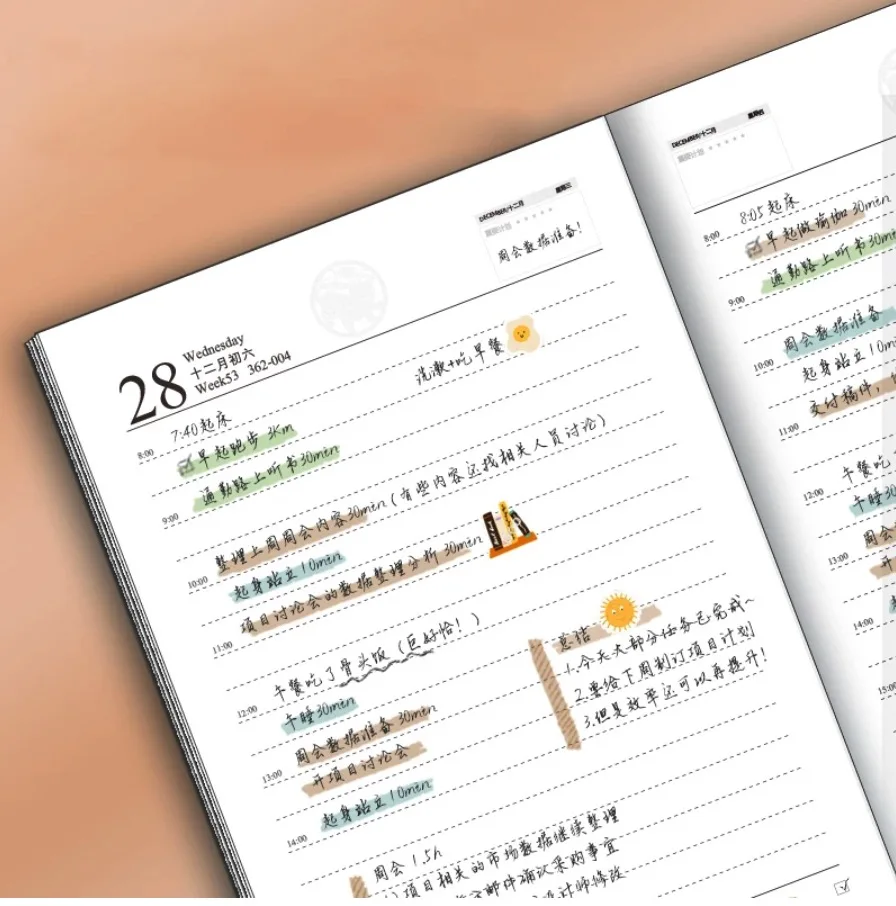 DECEMBER/十二月 星期三
重要计划 ★★★★★
周会数据准备!
28 Wednesday
十二月初六
Week53 362-004
洗漱+吃早餐
7:40起床
8:00
早起跑步 3Km
通勤路上听书30min
9:00
整理上周周会内容30min(有些内容还找相关人员讨论)
10:00
起身站立10min
项目讨论会的数据整理分析 30min
11:00
午餐吃了骨头饭(巨好恰!)
12:00
午睡30min
周会数据准备 30min
13:00
开项目讨论会
起身站立10min
14:00
总结
1.今天大部分任务已完成~
2.要给下周制订项目计划
3.但是效率还可以再提升!
周会 1.5h
项目相关的市场数据继续整理
邮件确认采购事宜
设计师修改
DECEMBER/十二月 星期四
重要计划 ★★★★★
8:05起床
8:00
早起做瑜伽30min
通勤路上听书30min
9:00
周会数据准备
10:00
起身站立10mi
交付稿件,
11:00
午餐吃
12:00
午睡30
周会
13:00
开
14:00
15:00